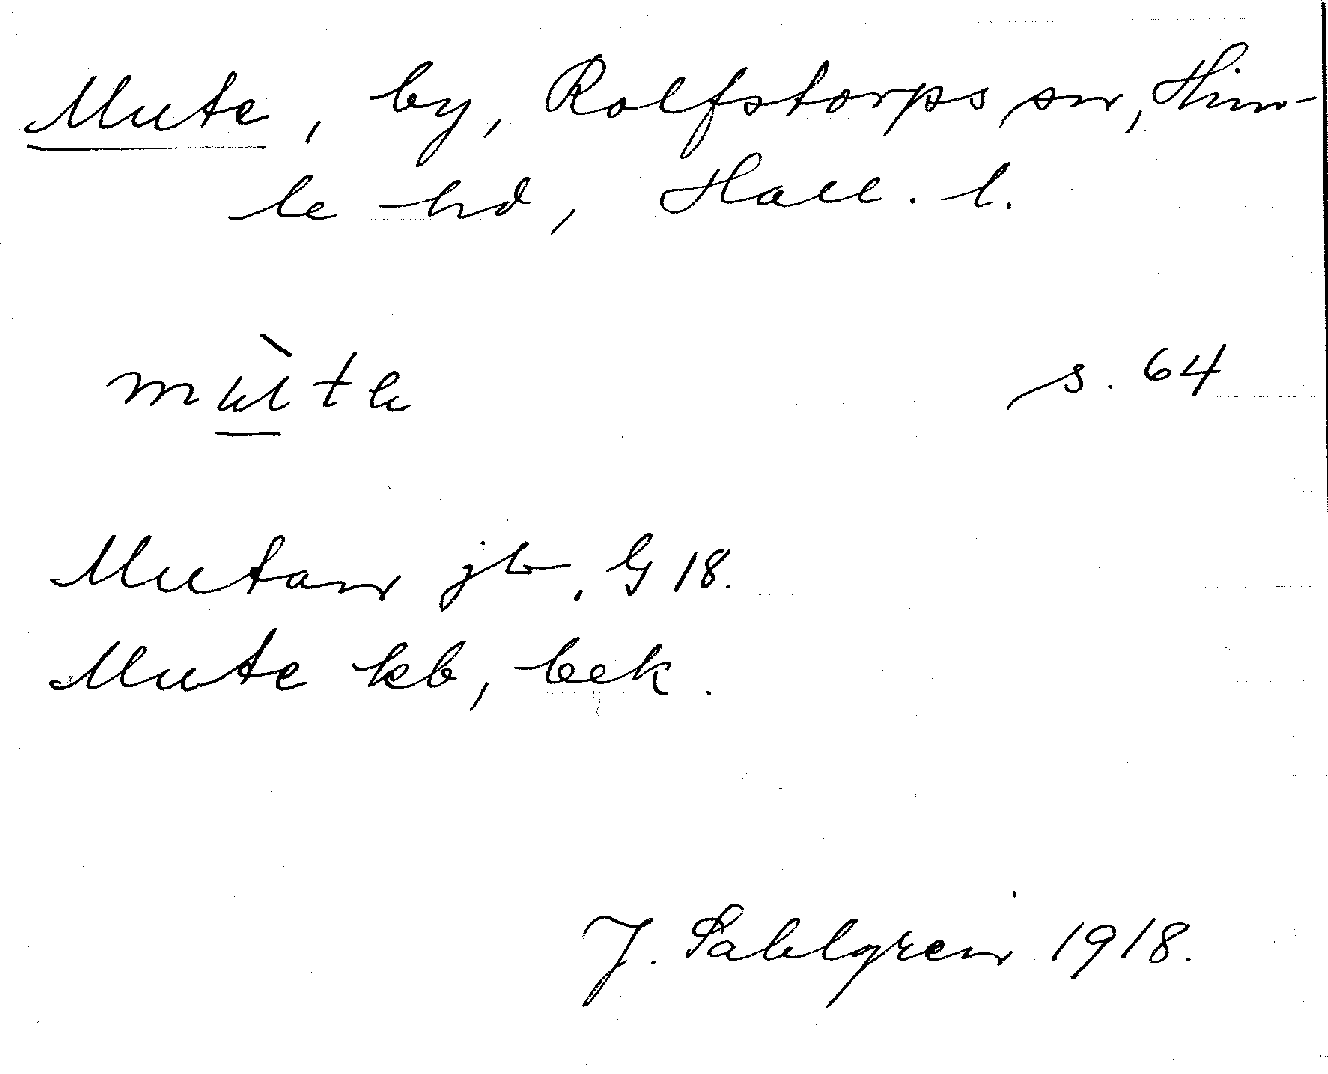 Mute, by, Rolfstorps sn, Him-
le hd, Hall. l.
mùte s. 64
Mutan jb. G 18.
Mute kb, bek.
J. Sahlgren 1918.